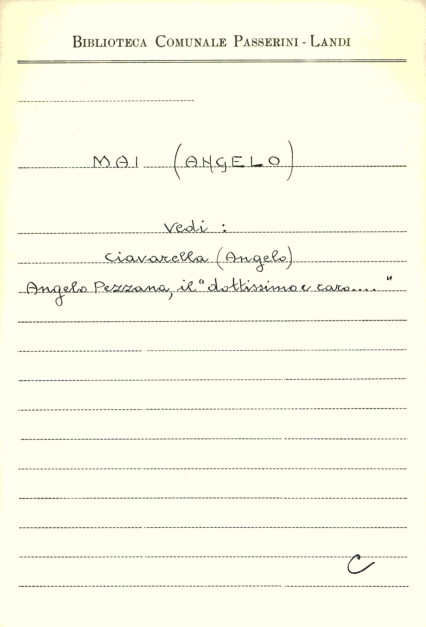 BIBLIOTECA COMUNALE PASSERINI - LANDI
MAI (ANGELO)
Vedi :
Ciavarella (Angelo)
Angelo Pezzana, il "dottissimo e caro.... "
C